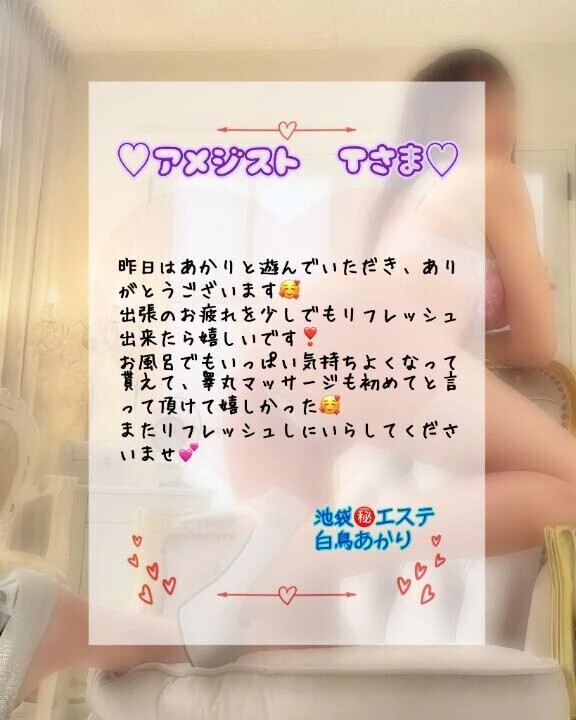 ♡アメジスト Tさま♡
昨日はあかりと遊んでいただき、あり
がとうございます🥰
出張のお疲れを少しでもリフレッシュ
出来たら嬉しいです❣️
お風呂でもいっぱい気持ちよくなって
貰えて、睾丸マッサージも初めてと言
って頂けて嬉しかった🥰
またリフレッシュしにいらしてくださ
いませ💕
池袋㊙️エステ
白鳥あかり